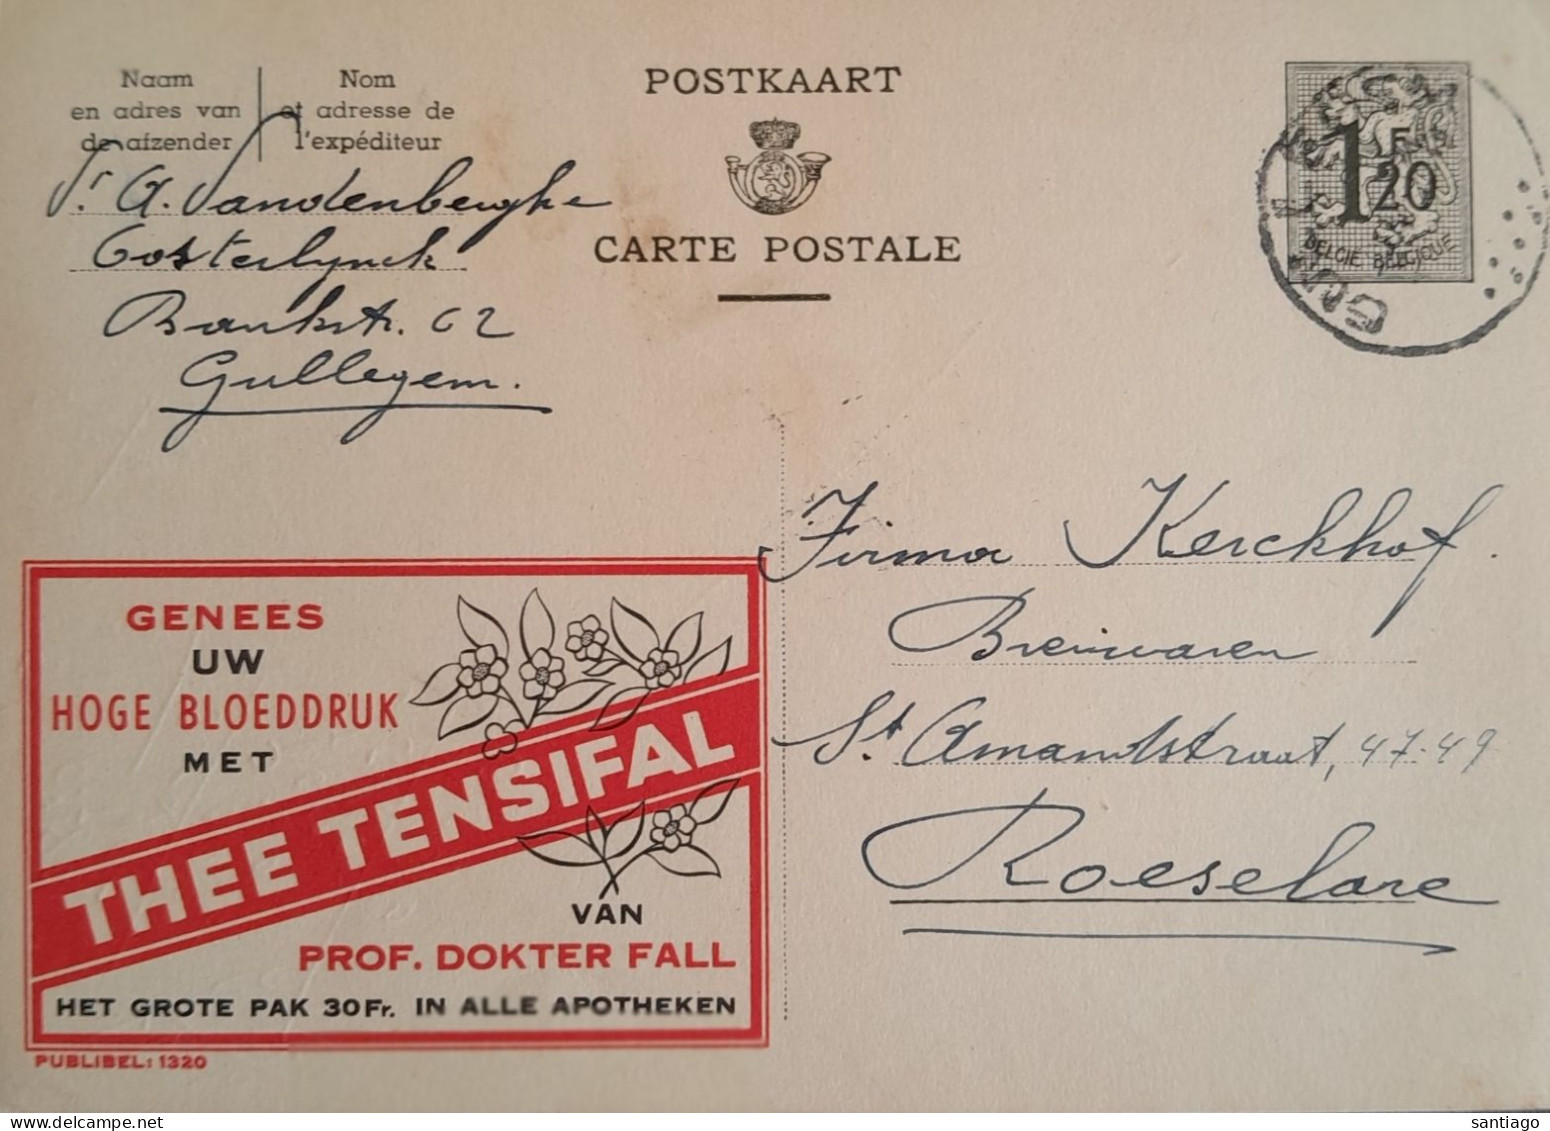 Naam
en adres van
de afzender
Nom
et adresse de
l'expéditeur
POSTKAART
CARTE POSTALE
1F
20
BELGIE BELGIQUE
A. Vandenberghe
Oosterlynck
Bankstr. 62
Gullegem.
Firma Kerckhof.
Breiwaren
St Amandstraat, 47-49
Roeselare
GENEES
UW
HOGE BLOEDDRUK
MET
THEE TENSIFAL
VAN
PROF. DOKTER FALL
HET GROTE PAK 30Fr. IN ALLE APOTHEKEN
PUBLIBEL: 1320
santiago